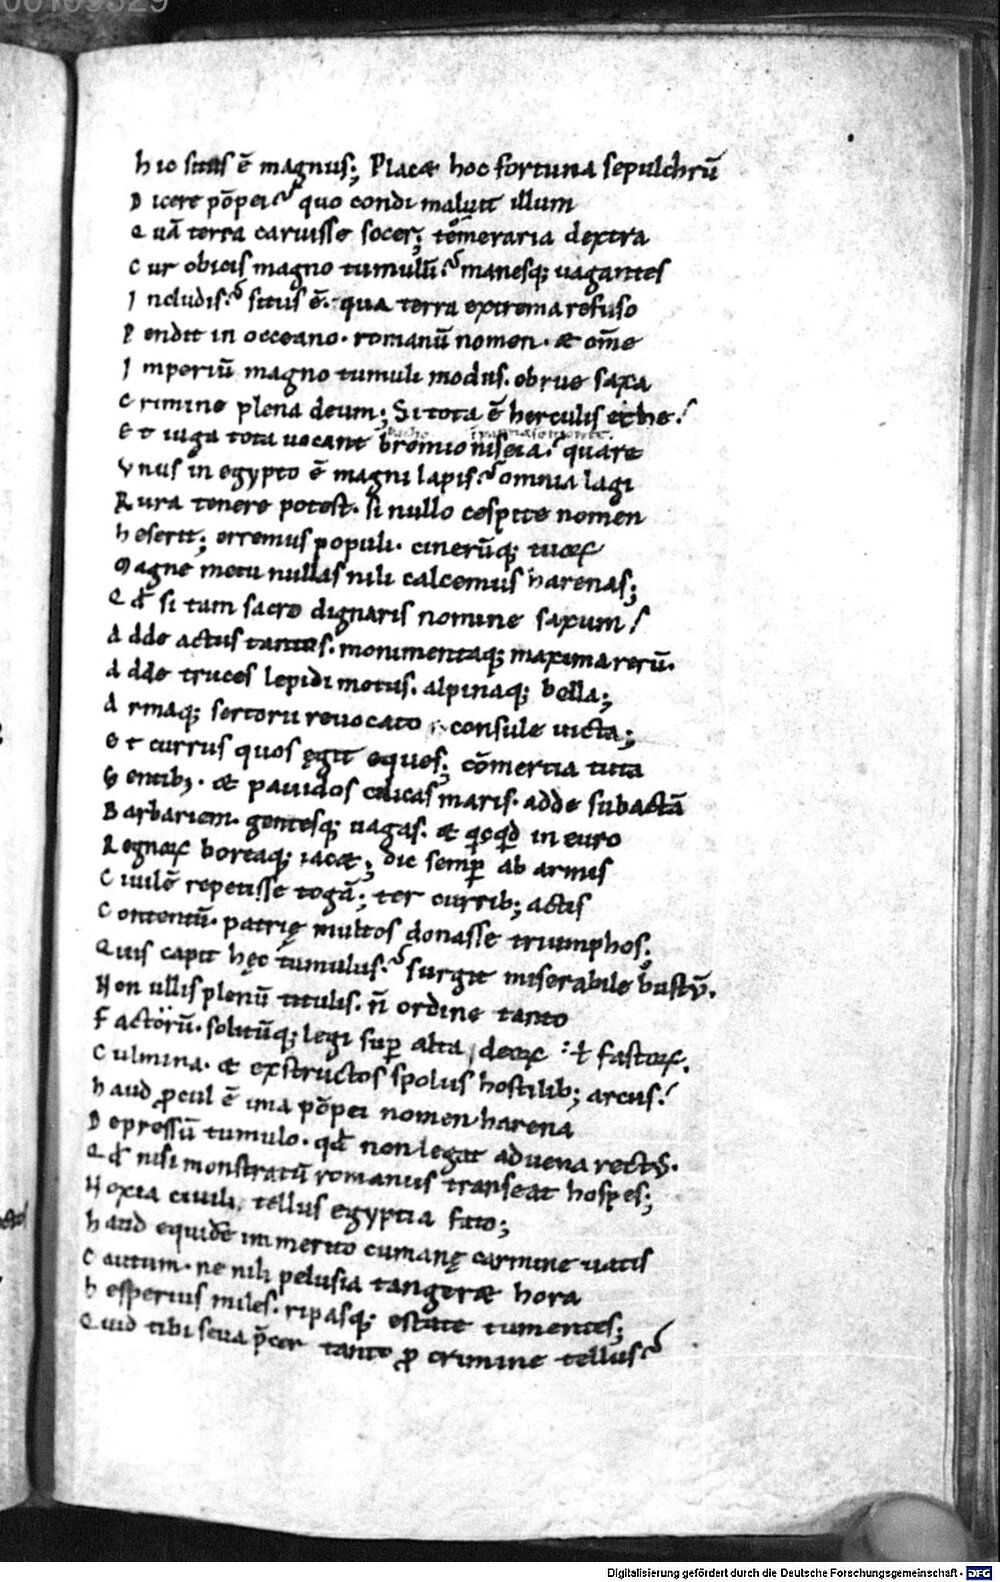 00109329
hic situs ē magnus; Placæ hoc fortuna sepulchrū
Dicere pōpei? quo condi maluit illum
Quā terra caruisse socer; temeraria dextra
Cur obicis magno tumulū? manesq; uagantes
Includis? situs ē. qua terra extrema refuso
Pendit in occeano. romanū nomen. æ om̄e
Imperiū magno tumuli modus. obrue saxa
Crimine plena deum; Si tota ē herculis
Et iuga tota uacant bromio niseia. quare
Vnus in egypto ē magni lapis? omnia lagi
Rura tenere potest. si nullo cespite nomen
heserit; erremus populi. cinerūq; tuoꝝ
Magne metu nullas nili calcemus harenas;
Qđ si tam sacro dignaris nomine saxum!
Adde actus tantos. monumentaq; maxima rerū.
Adde truces lepidi motus. alpinaq; bella;
Armaq; sertorii reuocato consule uicta;
Et currus quos ęgit eques; cōmertia tuta
Gentib; . æ pauidos cilicas maris. adde subactā
Barbariem. gentesq; uagas. æ qͥcqͥd in euro
Regnoꝝ boreaq; iacæ; dic semꝑ ab armis
Ciuilē repetisse togā; ter currib; actis
Contentū. patrię multos donasse triumphos;
Quis capit hęc tumulus? surgit miserabile bustū.
Non ullis plenū titulis. ñ ordine tanto
Factorū. solitūq; legi suꝑ alta deoꝝ ł fastoꝝ.
Culmina. æ exstructos spoliis hostilib; arcus!
haud ꝓcul ē ima pōpei nomen harena
Depressū tumulo. qđ non legat aduena rectꝰ.
Qđ nisi monstratū romanus transeat hospes;
Noxia ciuili tellus egyptia fato;
haud equidē immerito cumanę carmine uatis
Cautum. ne nili pelusia tangeræ hora
hesperius miles. ripasq; estate tumentes;
Quid tibi seua p̄cer tanto ꝓ crimine tellus?
Digitalisierung gefördert durch die Deutsche Forschungsgemeinschaft - DFG